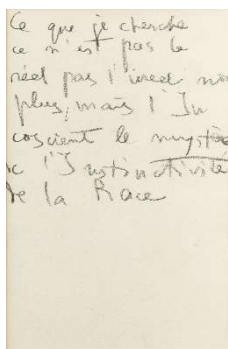 Ce que je cherche
ce n'est pas le
réel pas l'irréel non
plus, mais l'In
coscient le mystère
de l'Instinctivité
de la Race